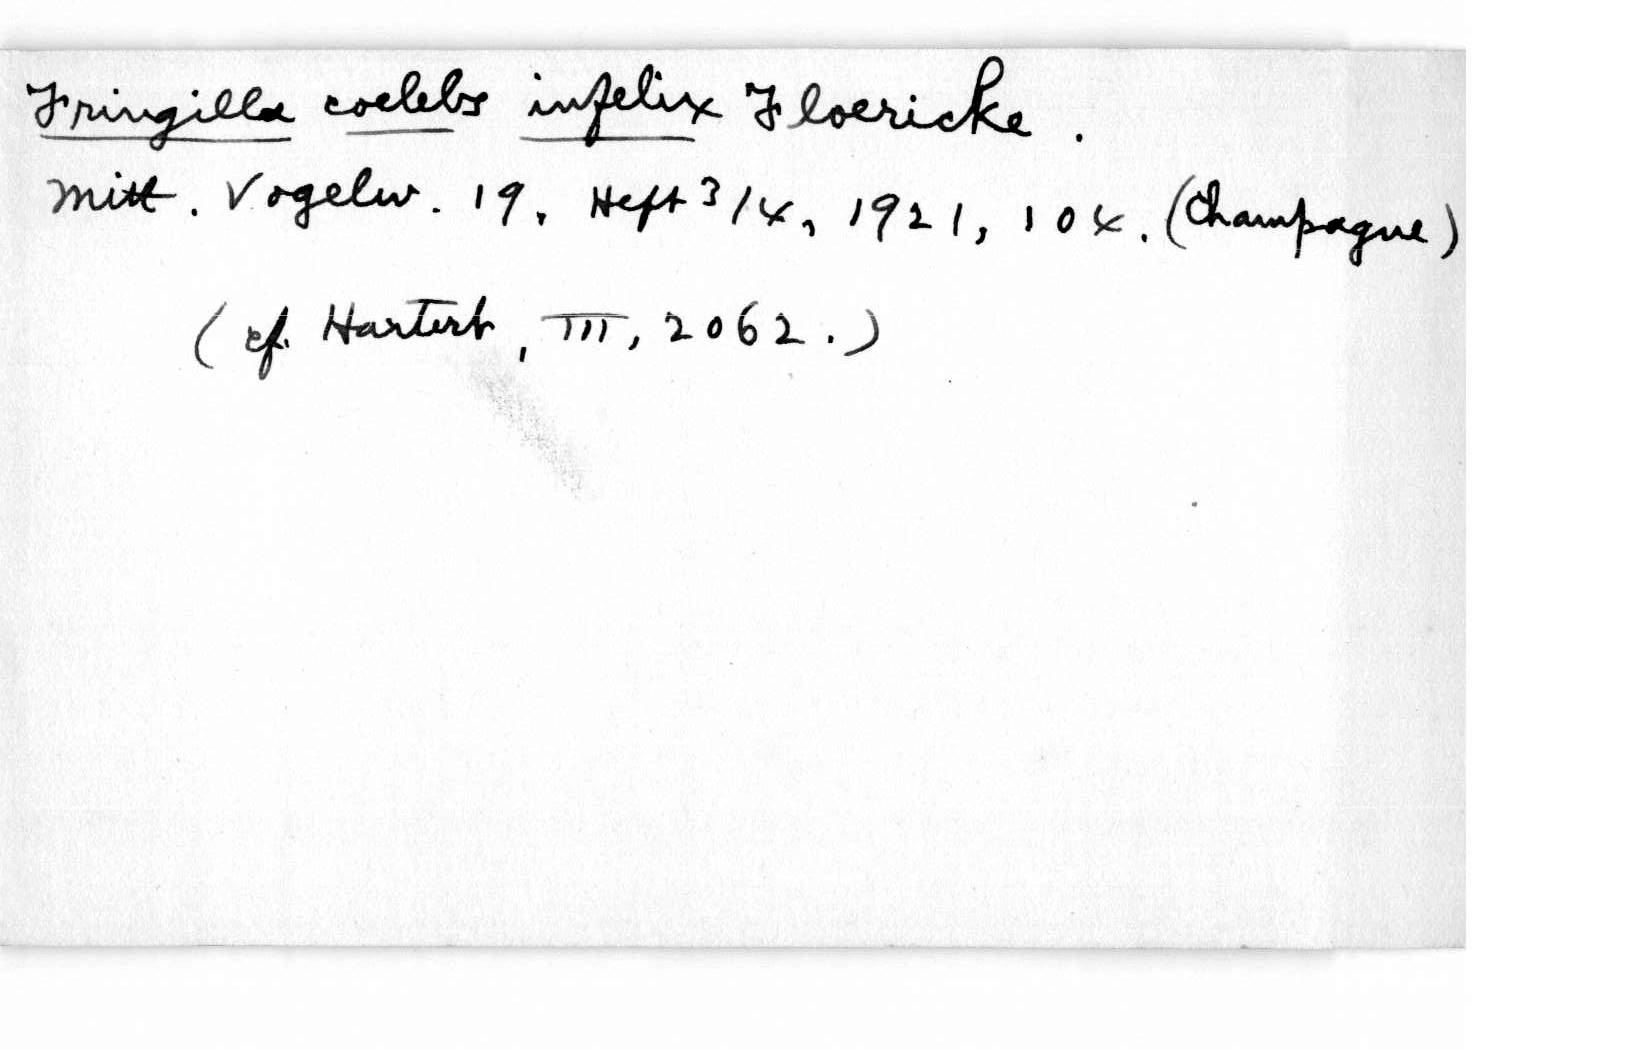 Fringilla coelebs infelix Floericke.
Mitt. Vogelw. 19, Heft 3/4, 1921, 104. (Champagne)
(cf. Hartert, III, 2062.)